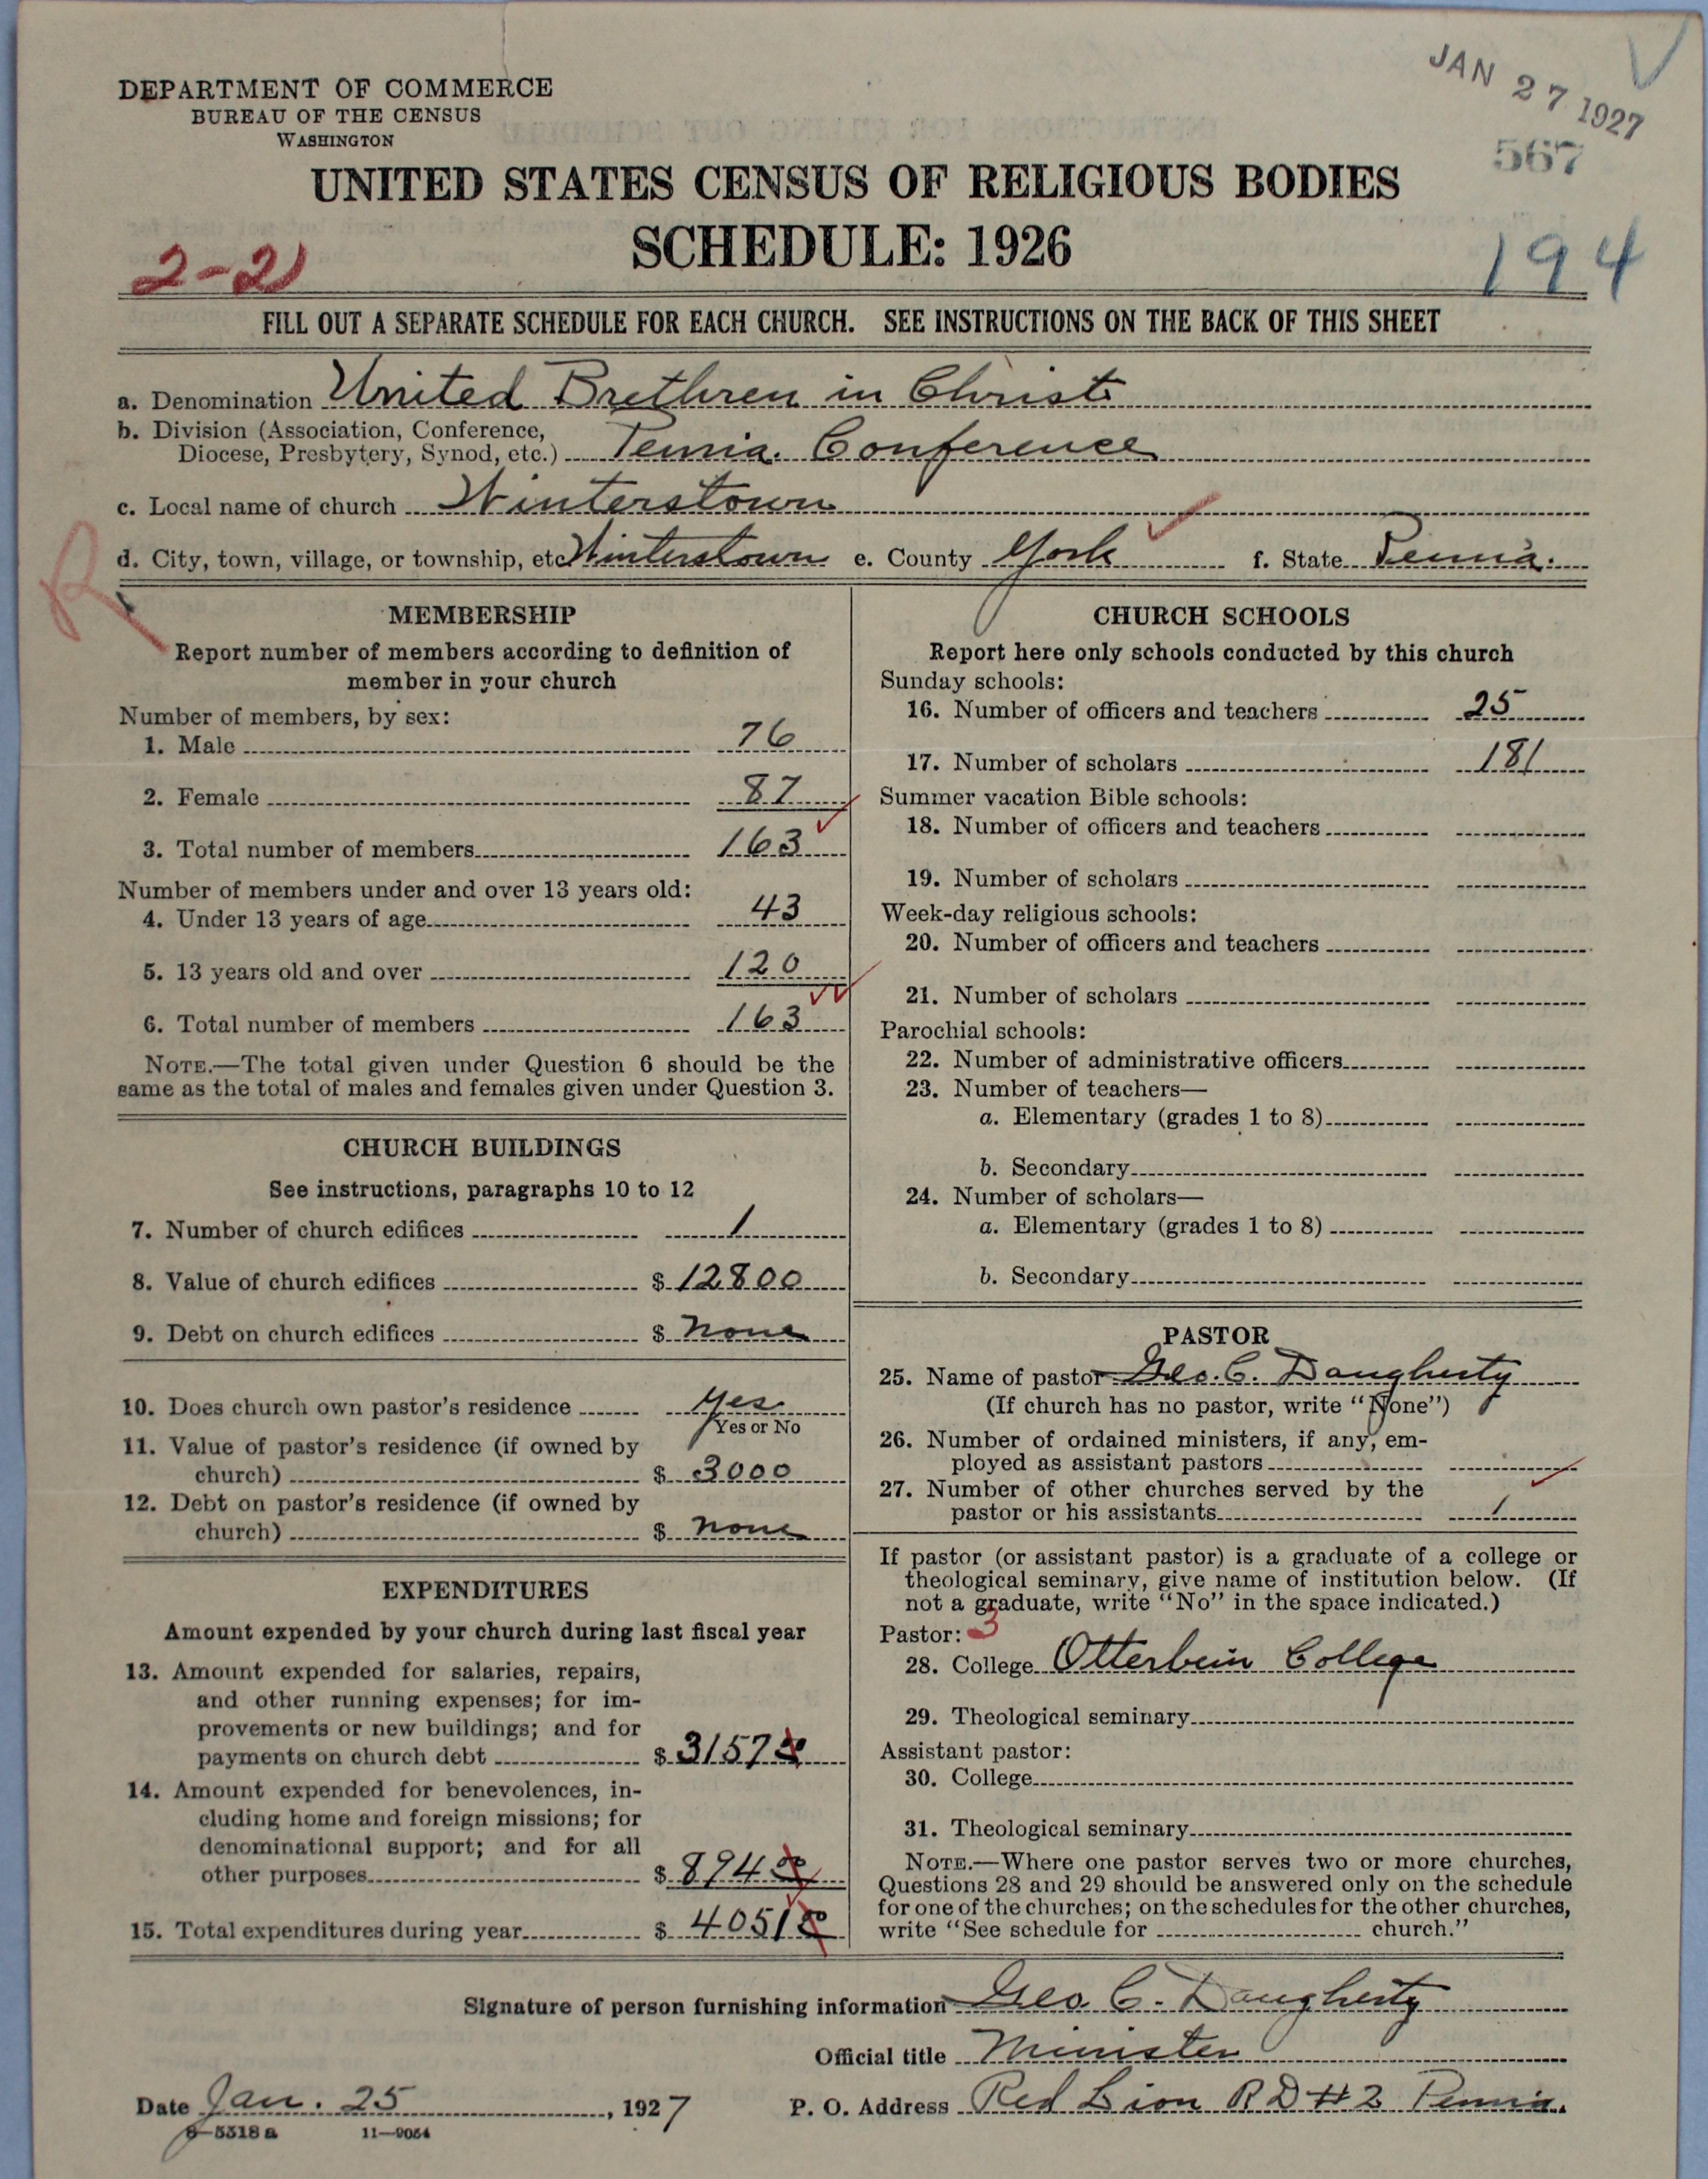 JAN 27 1927
567
DEPARTMENT OF COMMERCE
BUREAU OF THE CENSUS
WASHINGTON
UNITED STATES CENSUS OF RELIGIOUS BODIES
SCHEDULE: 1926
2-21
194
FILL OUT A SEPARATE SCHEDULE FOR EACH CHURCH. SEE INSTRUCTIONS ON THE BACK OF THIS SHEET
a. Denomination United Brethren in Christ
b. Division (Association, Conference,
Diocese, Presbytery, Synod, etc.) Penna. Conference
c. Local name of church Winterstown
d. City, town, village, or township, etc. Winterstown e. County York f. State Penna.
R
MEMBERSHIP
Report number of members according to definition of
member in your church
Number of members, by sex:
1. Male 76
2. Female 87
3. Total number of members 163
Number of members under and over 13 years old:
4. Under 13 years of age 43
5. 13 years old and over 120
6. Total number of members 163
NOTE.—The total given under Question 6 should be the
same as the total of males and females given under Question 3.
CHURCH BUILDINGS
See instructions, paragraphs 10 to 12
7. Number of church edifices 1
8. Value of church edifices $ 12800
9. Debt on church edifices $ none
10. Does church own pastor's residence yes
Yes or No
11. Value of pastor's residence (if owned by
church) $ 3000
12. Debt on pastor's residence (if owned by
church) $ none
EXPENDITURES
Amount expended by your church during last fiscal year
13. Amount expended for salaries, repairs,
and other running expenses; for im-
provements or new buildings; and for
payments on church debt $ 3157 00
14. Amount expended for benevolences, in-
cluding home and foreign missions; for
denominational support; and for all
other purposes $ 894 00
15. Total expenditures during year $ 4051 00
CHURCH SCHOOLS
Report here only schools conducted by this church
Sunday schools:
16. Number of officers and teachers 25
17. Number of scholars 181
Summer vacation Bible schools:
18. Number of officers and teachers
19. Number of scholars
Week-day religious schools:
20. Number of officers and teachers
21. Number of scholars
Parochial schools:
22. Number of administrative officers
23. Number of teachers—
a. Elementary (grades 1 to 8)
b. Secondary
24. Number of scholars—
a. Elementary (grades 1 to 8)
b. Secondary
PASTOR
25. Name of pastor Geo. C. Daugherty
(If church has no pastor, write "None")
26. Number of ordained ministers, if any, em-
ployed as assistant pastors
27. Number of other churches served by the
pastor or his assistants 1
If pastor (or assistant pastor) is a graduate of a college or
theological seminary, give name of institution below. (If
not a graduate, write "No" in the space indicated.)
Pastor: 3
28. College Otterbein College
29. Theological seminary
Assistant pastor:
30. College
31. Theological seminary
NOTE.—Where one pastor serves two or more churches,
Questions 28 and 29 should be answered only on the schedule
for one of the churches; on the schedules for the other churches,
write "See schedule for church."
Signature of person furnishing information Geo. C. Daugherty
Official title Minister
Date Jan. 25, 1927 P. O. Address Red Lion R D #2 Penna.
8—5318 a 11—9054